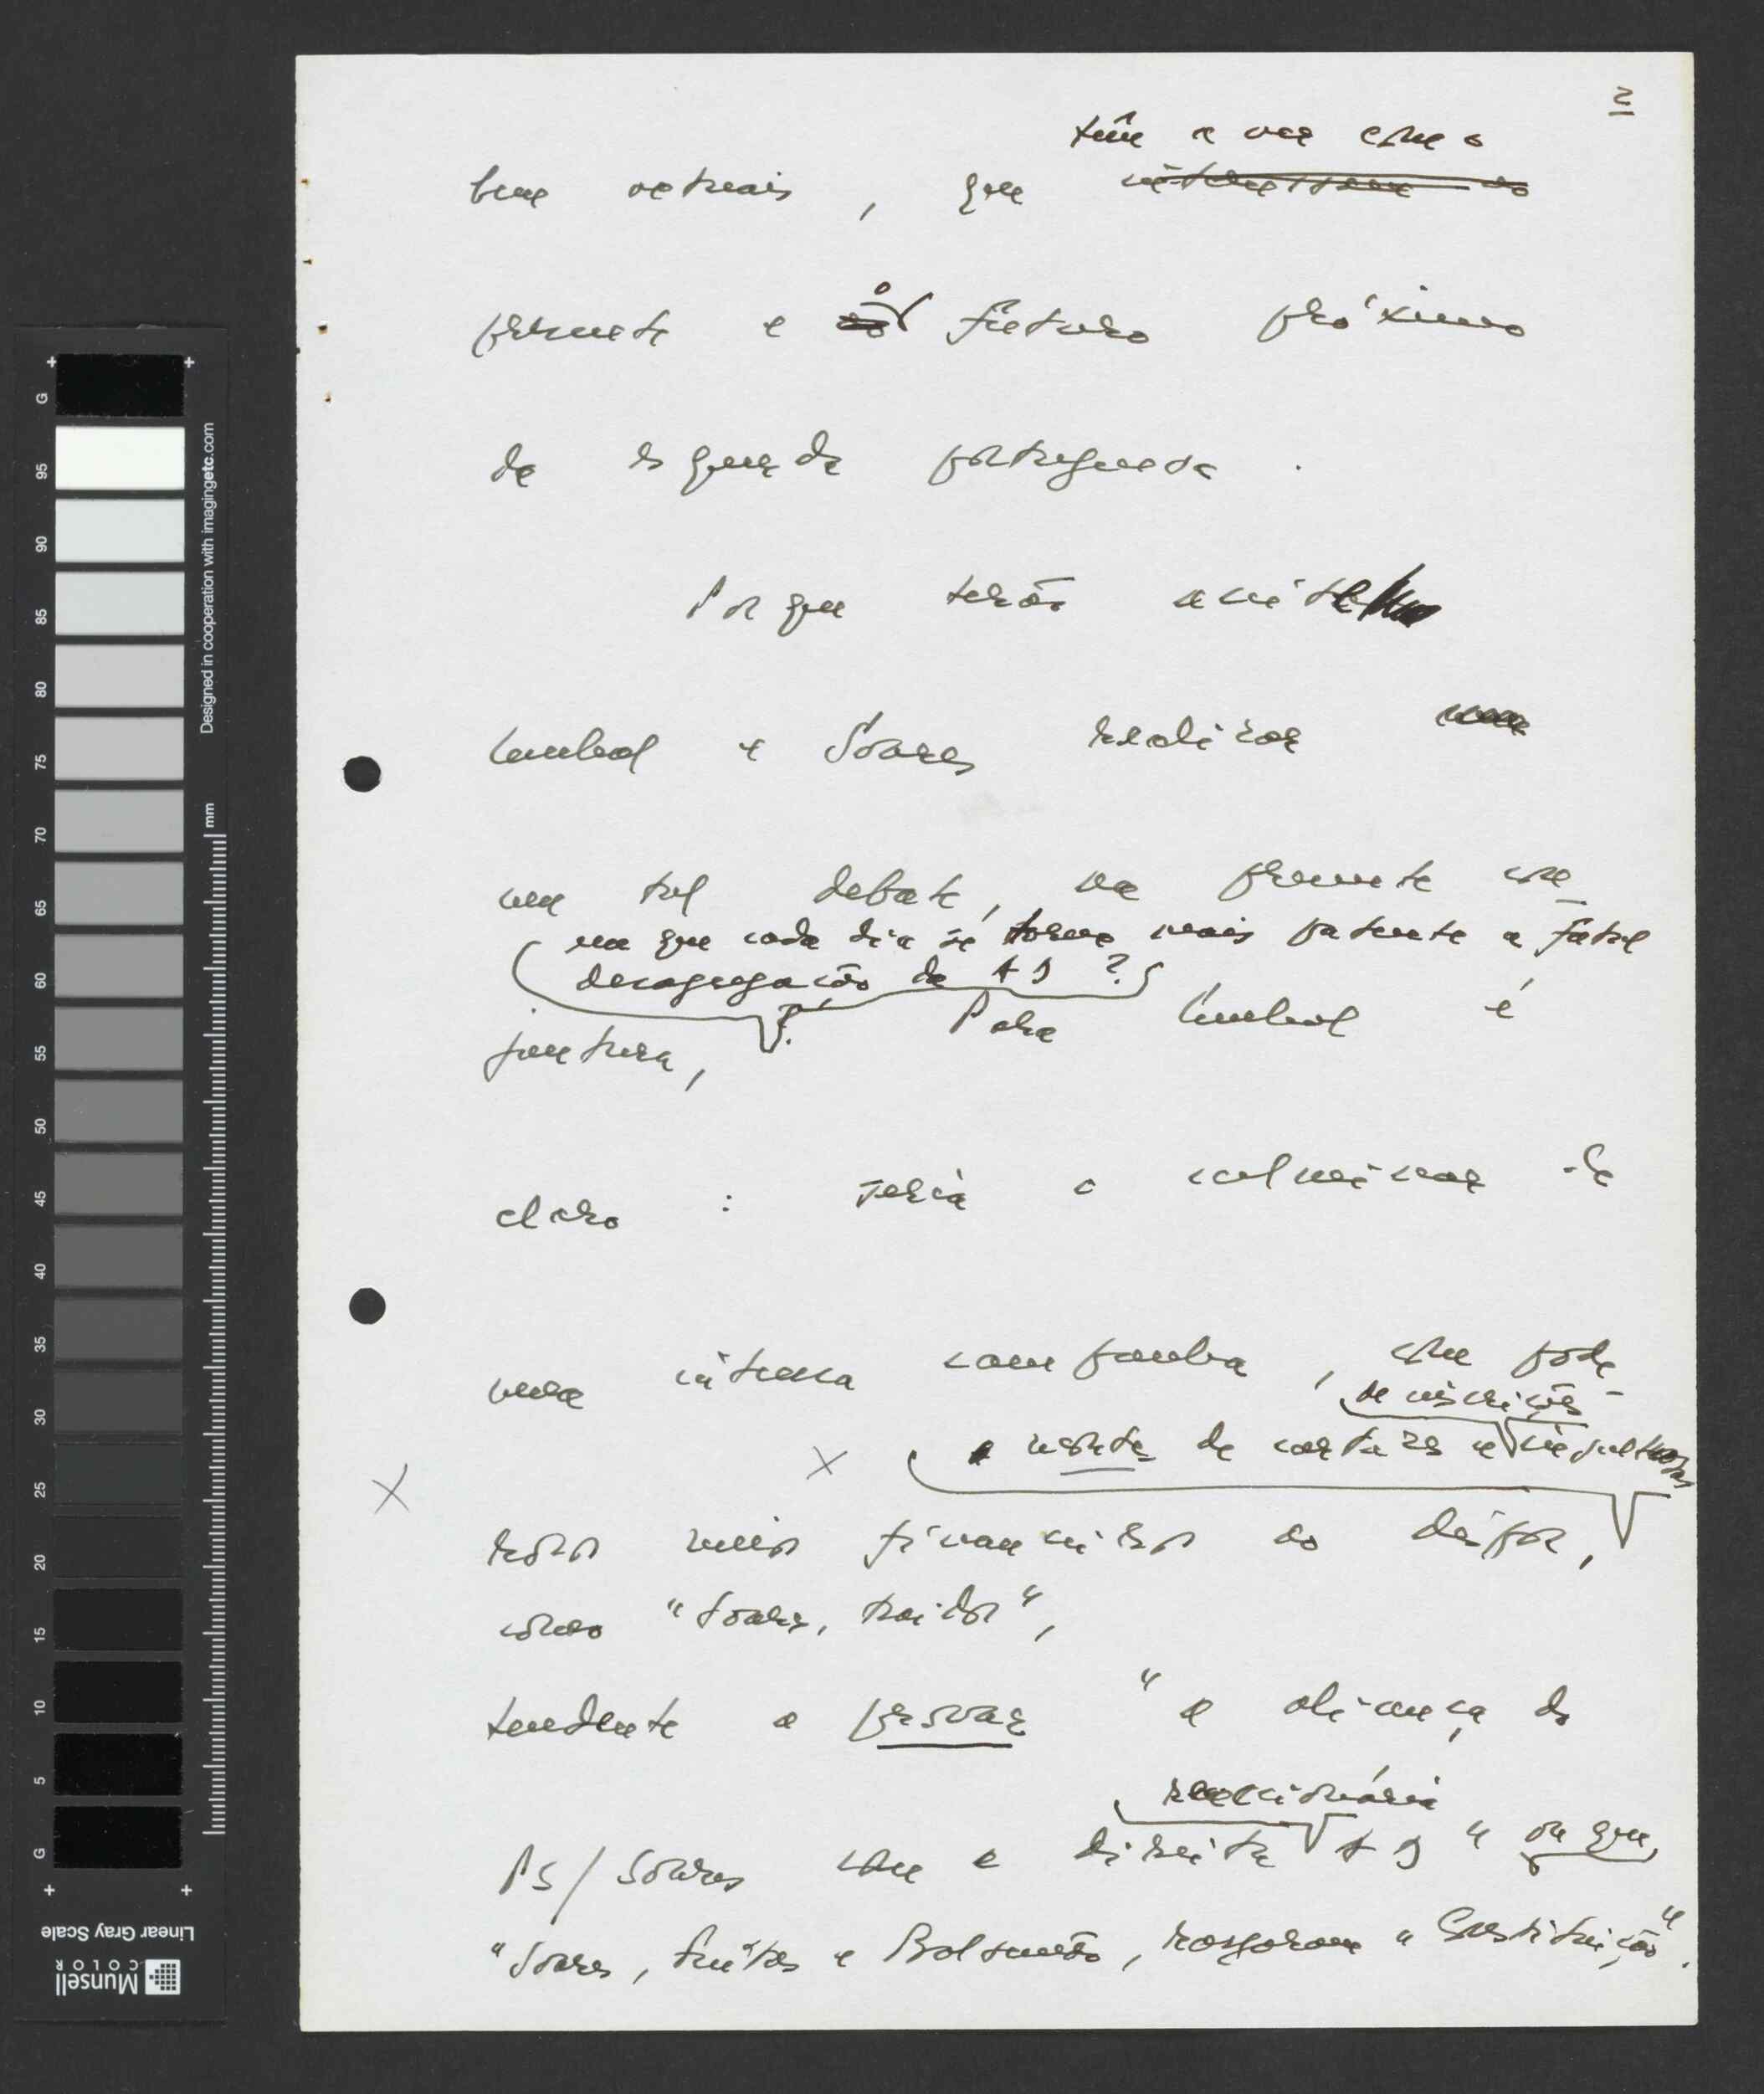 2
têm a ver com o
bem actuais, que interessam ao
presente e ao o futuro próximo
da esquerda portuguesa.
Porque terão aceite
Cunhal e Soares realizar
um tal debate, na presente con-
em que cada dia se torna mais patente a fatal
desagregação da AD?
juntura, ? Para Cunhal é
claro : seria o culminar de
uma intensa campanha, com pode-
de inscrições
e recorte de cartazes e insultuosas
rosos meios financeiros ao dispor,
como "Soares, traidor",
tendente a provar "a aliança do
reaccionária
PS/Soares com a direita AD" ou que,
"Soares, Freitas e Balsemão, rasgaram a Constituição".
G
95
90
85
80
75
70
65
60
55
50
45
40
35
30
25
20
15
10
5
G
mm
Designed in cooperation with imagingetc.com
Linear Gray Scale
Munsell
COLOR